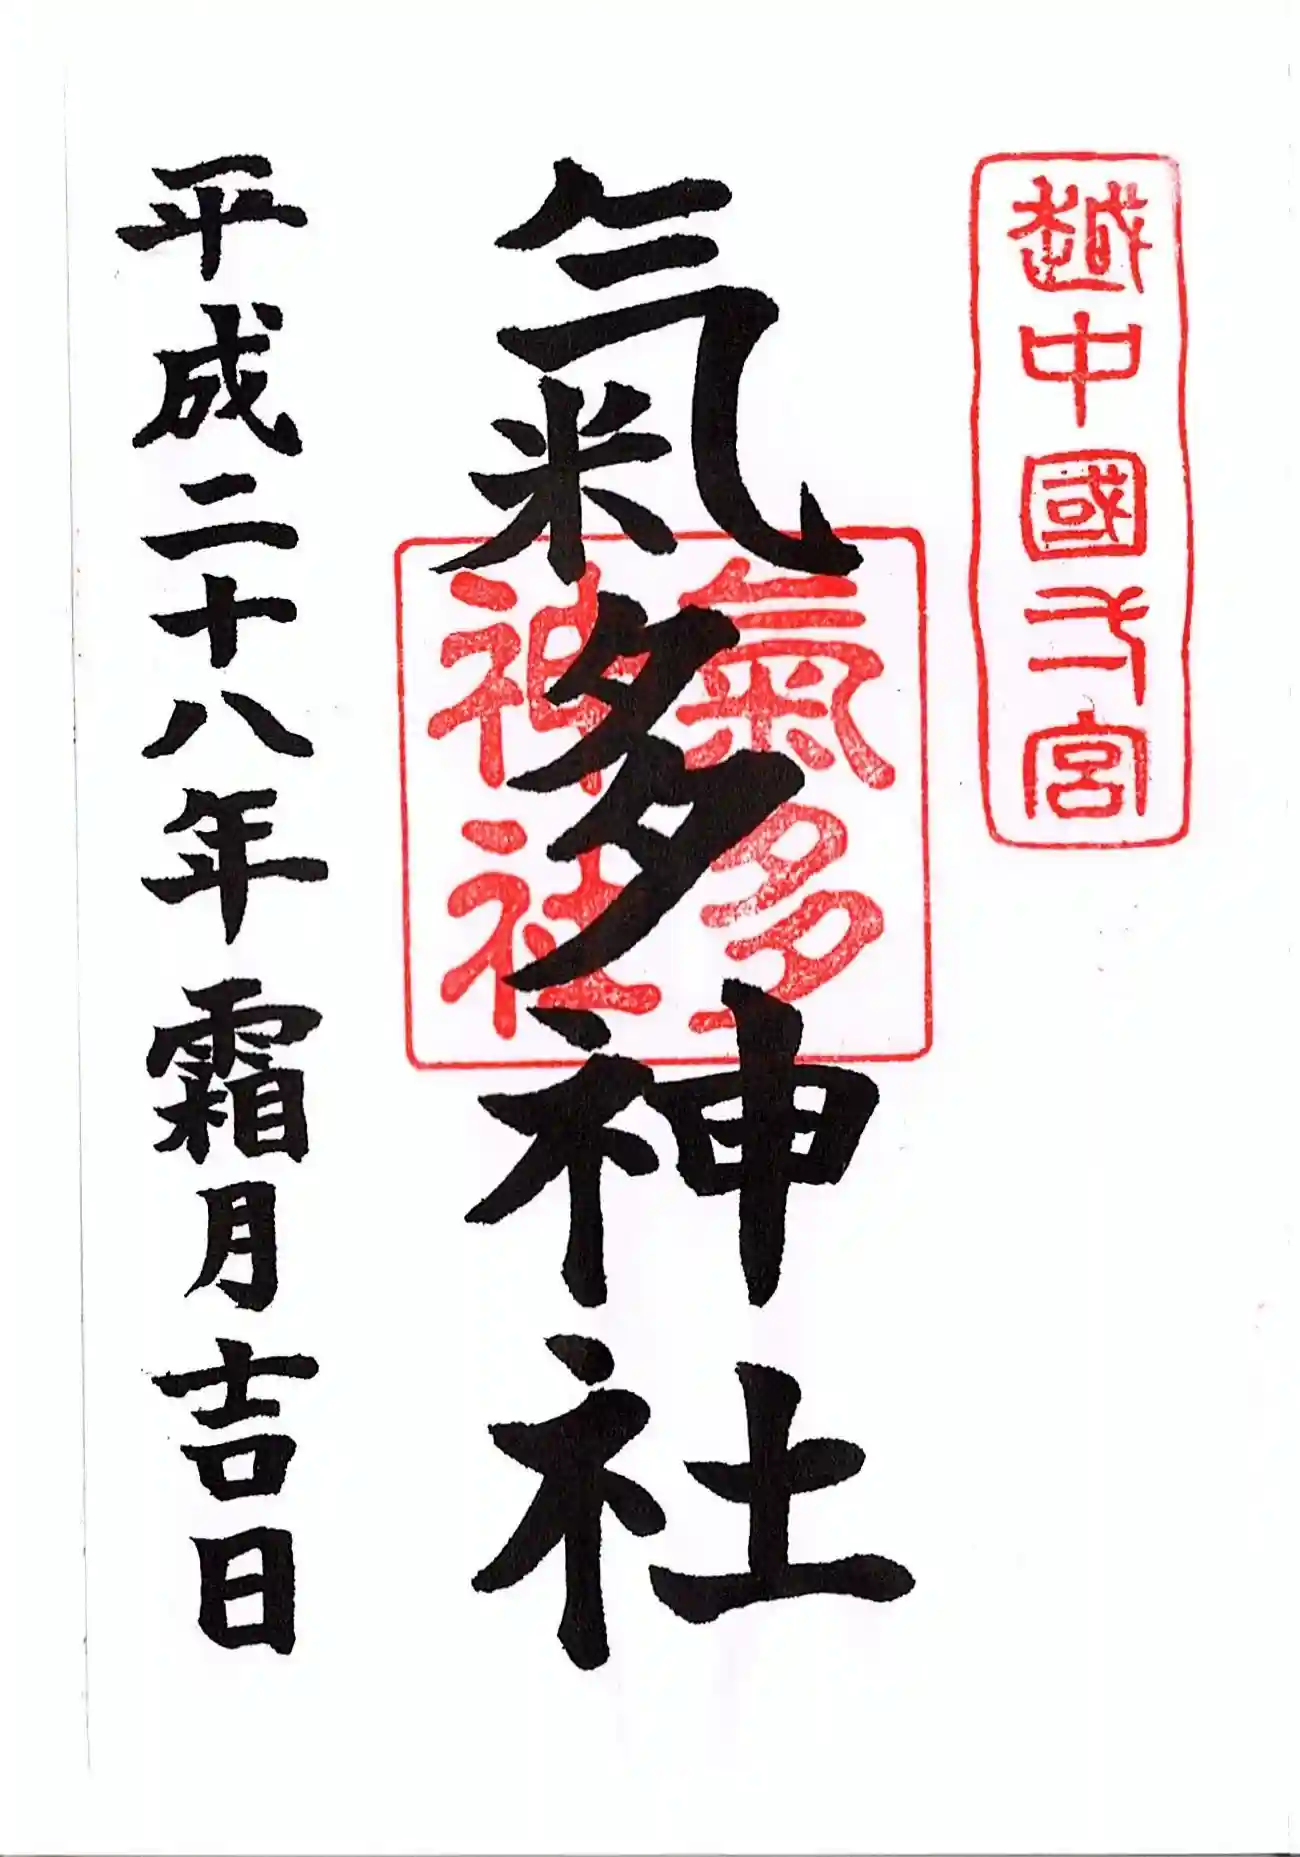 越中國一宮
氣多神社
氣多
神社
平成二十八年霜月吉日